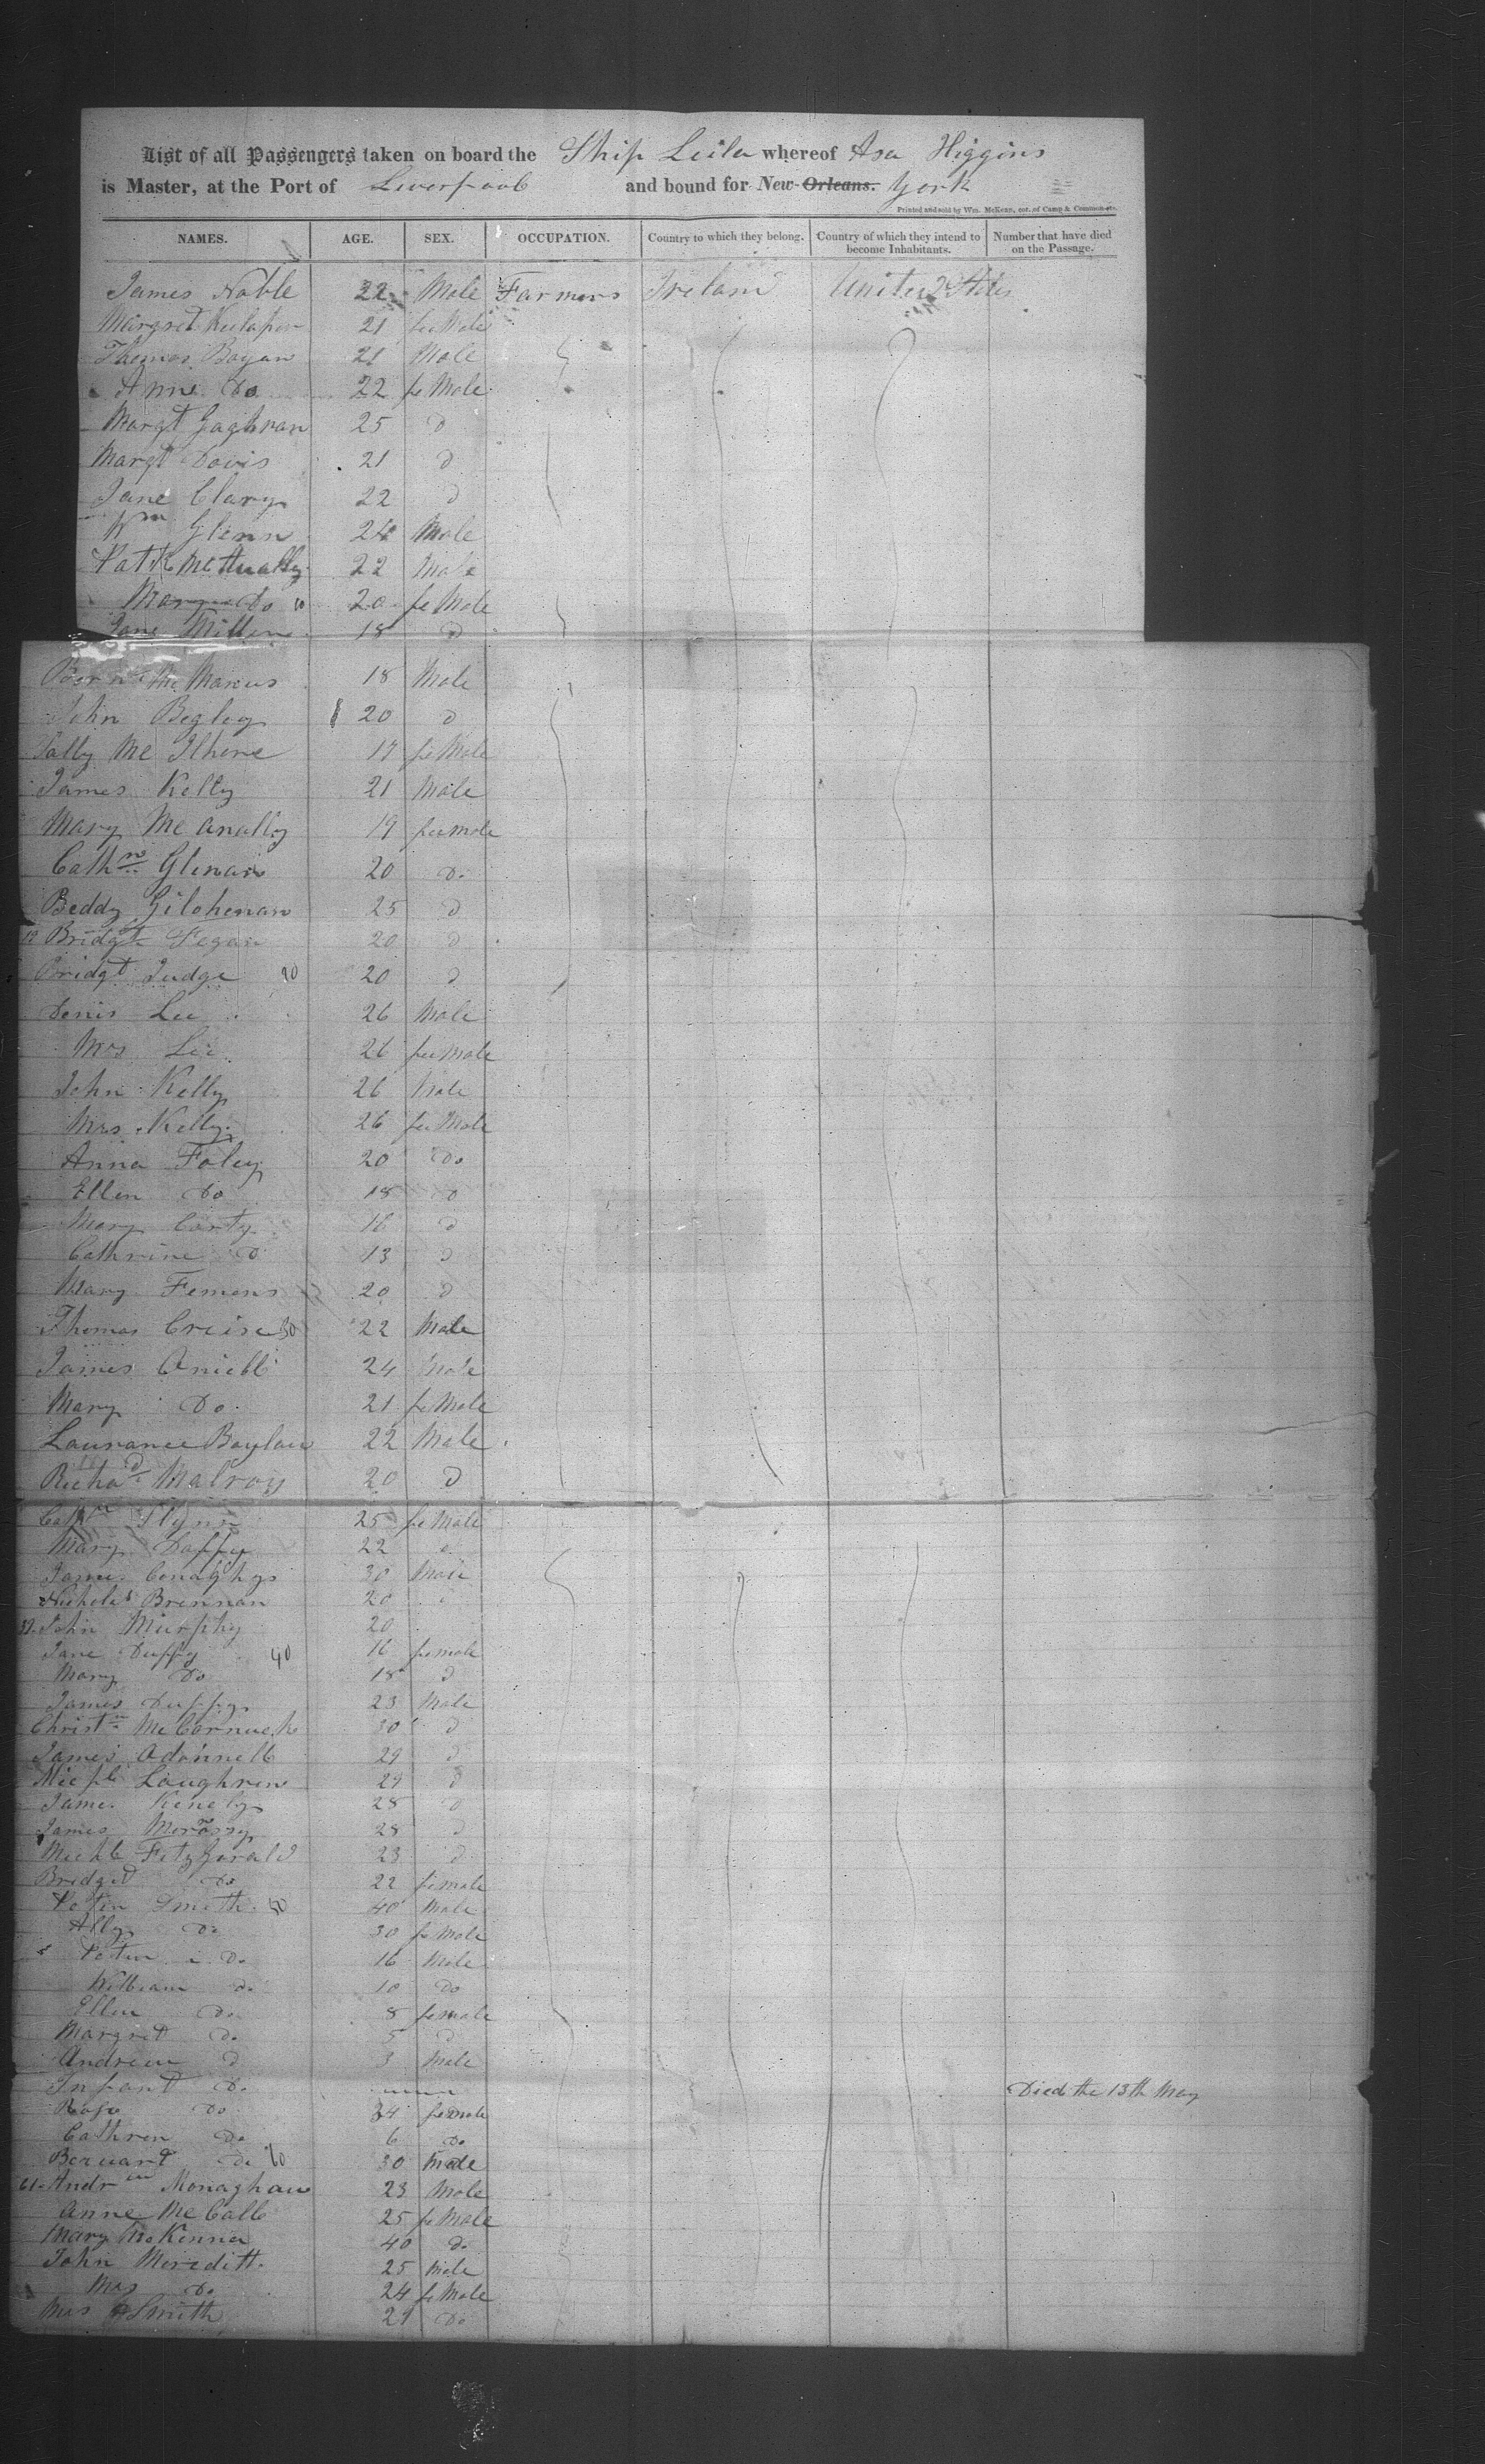 List of all Passengers taken on board the Ship Leila whereof Asa Higgins
is Master, at the Port of Liverpool and bound for New Orleans. York
Printed and sold by Wm. McKean, cor. of Camp & Common-sts.
NAMES. AGE. SEX. OCCUPATION. Country to which they belong. Country of which they intend to become Inhabitants. Number that have died on the Passage.
James Noble 22 Male Farmers Ireland United States
Margret 21 feMale
Thomas Bogan 21 Male
Anne Do 22 feMale
Margt Gaghran 25 d
Margt Davis 21 d
Jane Clary 22 d
Wm Glenn 24 Male
Patk McAnally 22 Male
Mary Do 10 20 feMale
Jane Millen 18 d
Bernd Mc Manus 18 Male
John Begley 20 d
Sally Mc Ilhene 17 feMale
James Kelly 21 Male
Mary Mc Anally 19 feemale
Cathne Glenan 20 Do
Beddy Gilohenan 25 d
19 Bridgt Fegan 20 d
Bridgt Judge 20 20 d
Denis Lee 26 Male
Mrs Lee 26 feemale
John Kelly 26 Male
Mrs Kelly 26 feeMale
Anna Foley 20 Do
Ellen Do 18 d
Mary Carty 16 d
Cathrine D 13 d
Mary Femons 20 d
Thomas Creise 30 22 Male
James Aniell 24 Male
Mary Do 21 feMale
Laurance Boylan 22 Male
Richad Malroy 20 d
Cathne Flynn 25 feMale
Mary Daffy 22 d
James Conaghy 30 Male
Nicholes Brennan 20
39 John Murphy 20
Jane Duffy 40 16 female
Mary Do 18 d
James Duffy 23 Male
Christn Mc Cormick 30 d
James Odonnell 29 d
Loughren 29 d
James Kenely 28 d
James 28 d
Michl Fitzgerald 23 d
Bridget Do 22 female
Peter Smith 50 40 Male
Ally Do 30 feMale
Peter Do 16 Male
William do 10 Do
Ellen Do 8 female
Margret Do 5 d
Andrew D 3 Male
Infant Do Died the 13th May
Rose Do 24 feemale
Cathren Do 6 Do
Bernard Do 60 30 Male
61 Andrew Monaghan 23 Male
Anne Mc Call 25 feMale
Mary McKenna 40 do
John Meredith 25 Male
Mrs Do 24 feMale
Mrs Smith 21 Do